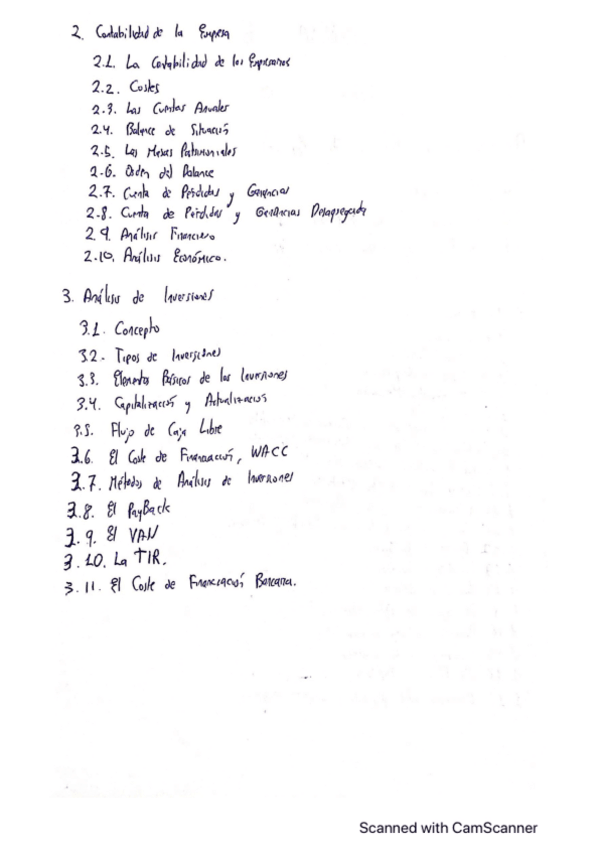 2. Contabilidad de la Empresa
2.1. La Contabilidad de los Empresarios
2.2. Costes
2.3. Las Cuentas Anuales
2.4. Balance de Situación
2.5. Las Masas Patrimoniales
2.6. Orden del Balance
2.7. Cuenta de Pérdidas y Ganancias
2.8. Cuenta de Pérdidas y Ganancias Desagregada
2.9. Análisis Financiero
2.10. Análisis Económico.
3. Análisis de Inversiones
3.1. Concepto
3.2. Tipos de Inversiones
3.3. Elementos Básicos de las Inversiones
3.4. Capitalización y Actualización
3.5. Flujo de Caja Libre
3.6. El Coste de Financiación, WACC
3.7. Métodos de Análisis de Inversiones
3.8. El PayBack
3.9. El VAN
3.10. La TIR.
3.11. El Coste de Financiación Bancaria.
Scanned with CamScanner